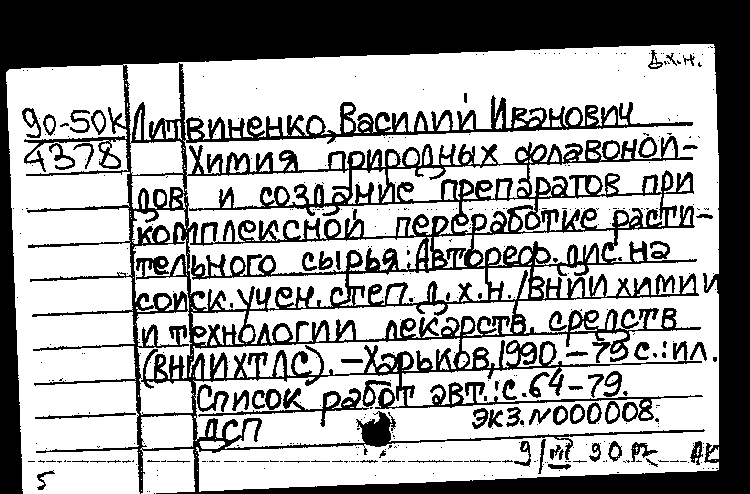 Д.х.н.
90-50К Литвиненко, Василий Иванович
4378 Химия природных флавоной-
дов и создание препаратов при
комплексной переработке расти-
тельного сырья: Автореф. дис. на
соиск. учен. степ. д.х.н. / ВНИИ химии
и технологии лекарств. средств
(ВНИИХТЛС). – Харьков, 1990. – 79 с.: ил.
Список работ авт.: с. 64-79.
ДСП экз. N000008.
9/III 90
5